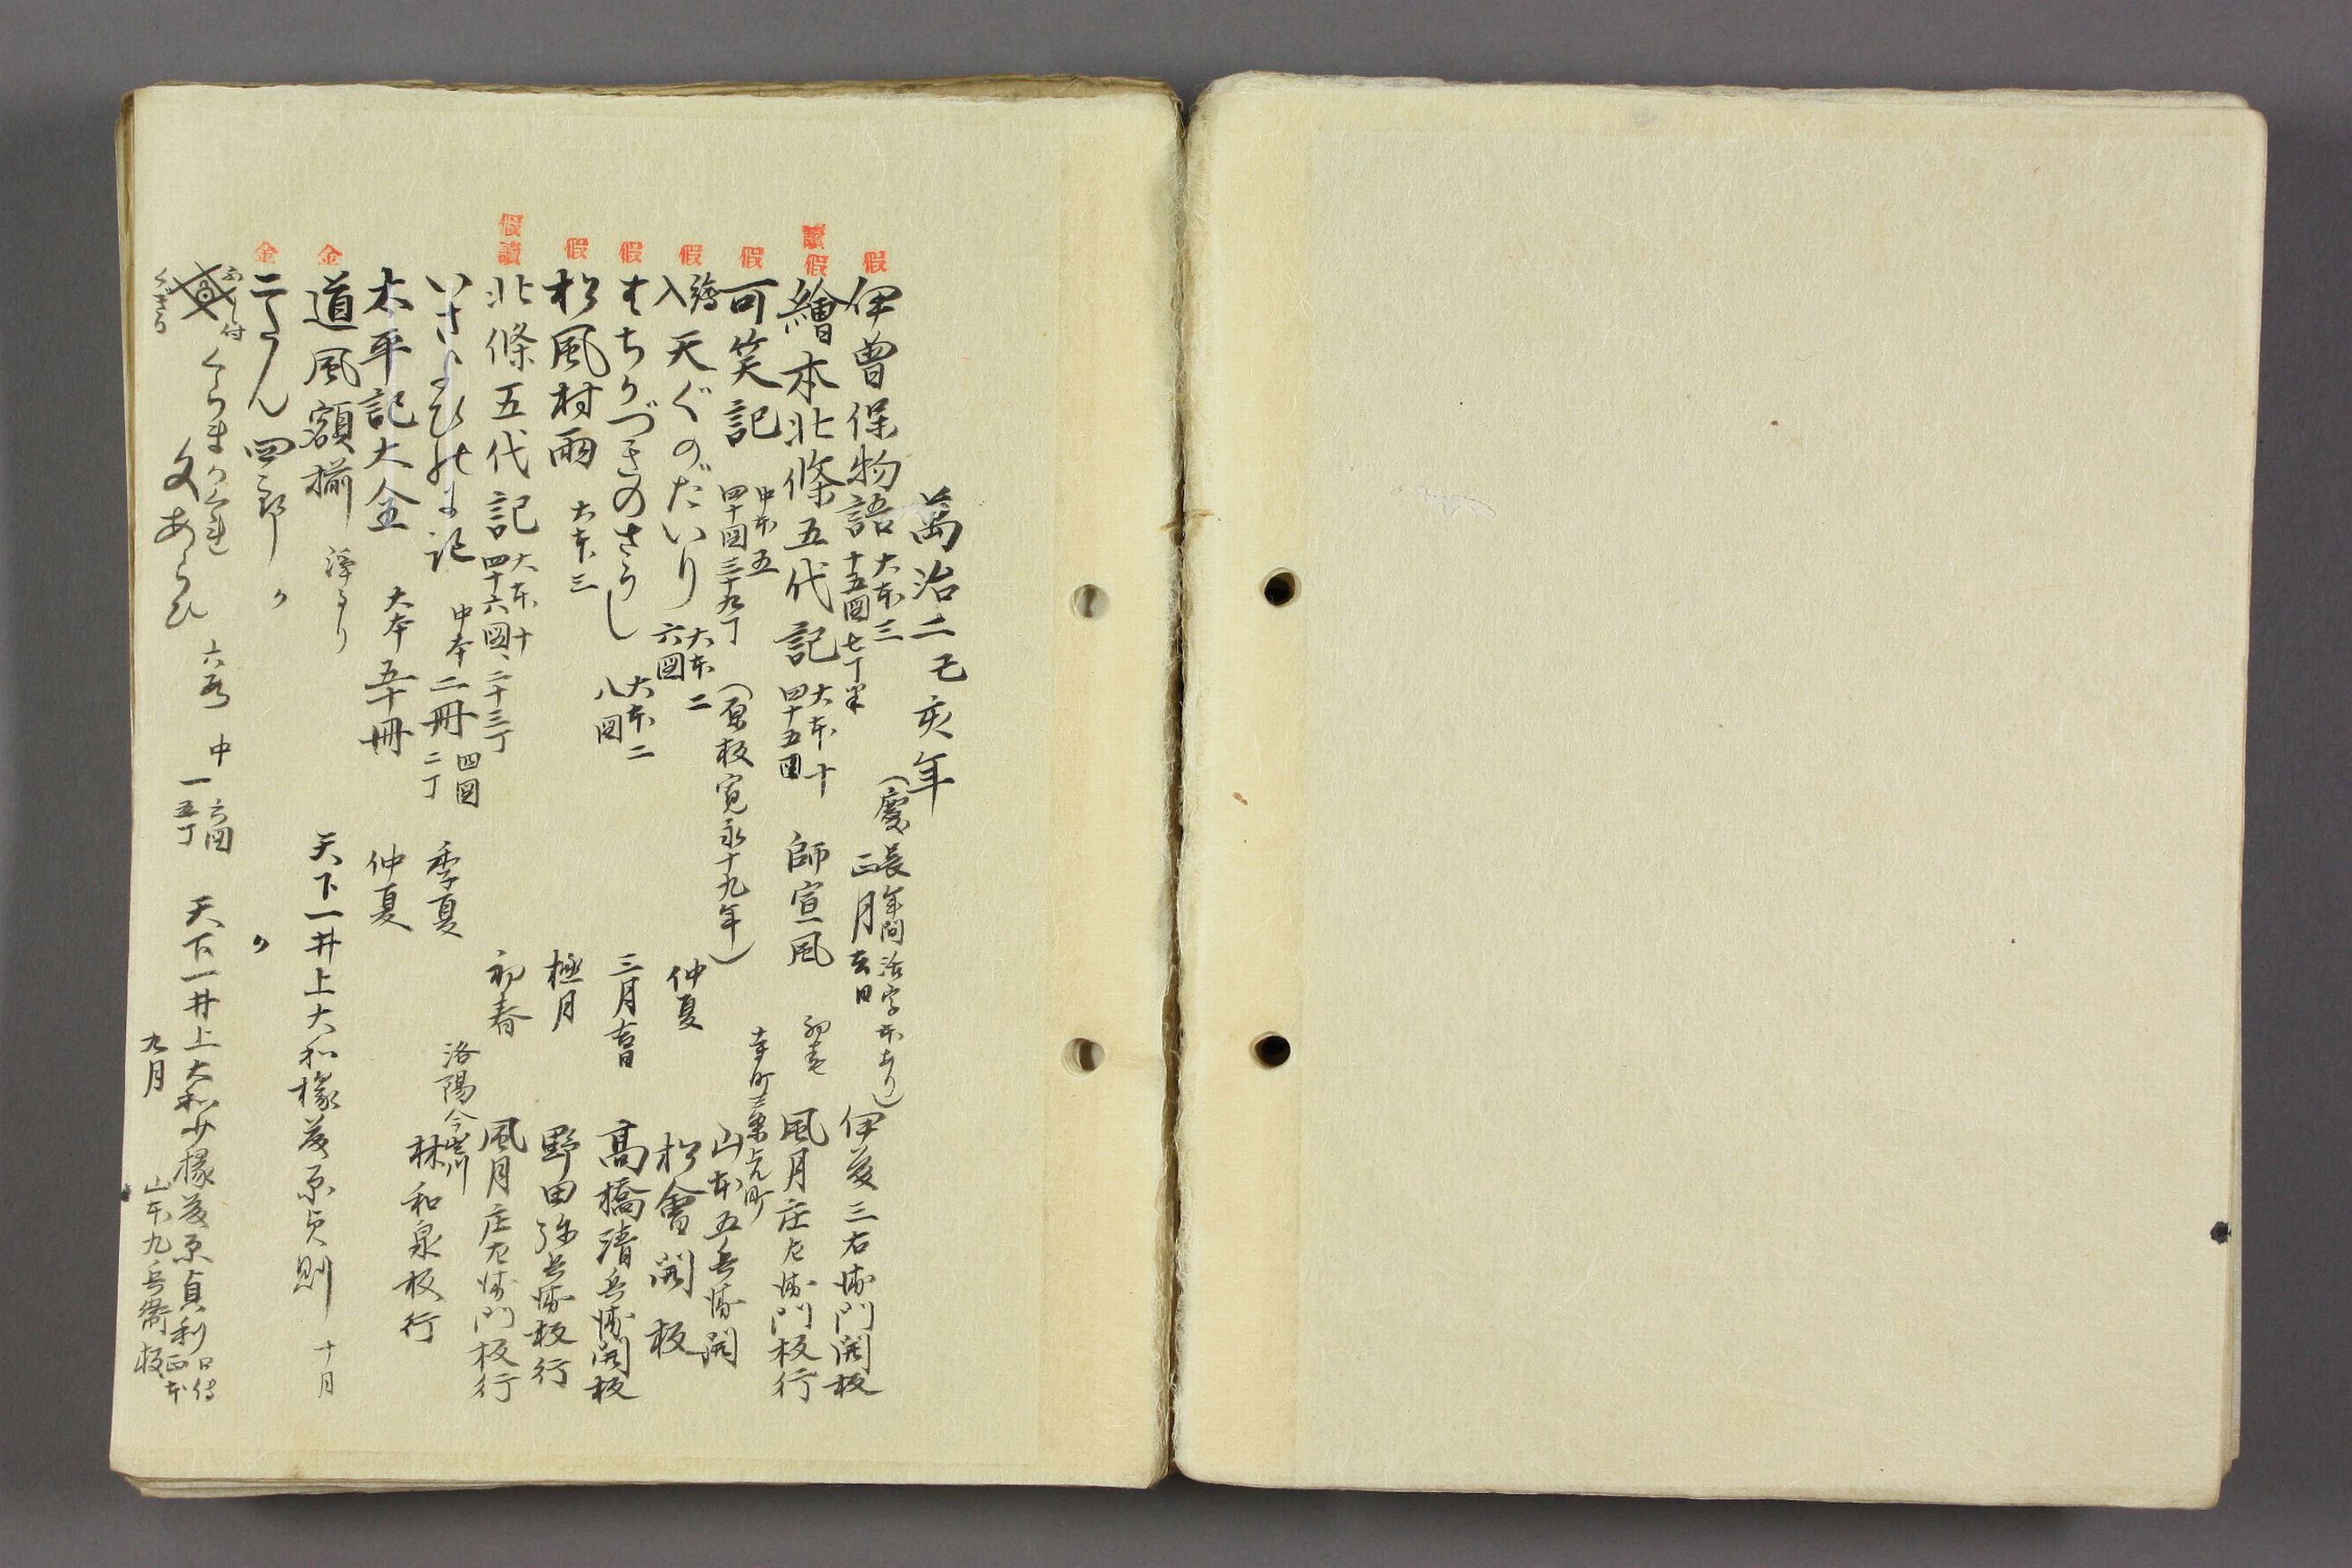 萬治二己亥年
假 伊曽保物語 大本三 十五図七丁半 (慶長年間活字本あり) 正月吉日 伊藤三右衛門開板
讀假 繪本北條五代記 大本十 四十五図 師宣風 初春 風月庄左衛門板行
假 可笑記 中本五 四十図三十九丁 (原板寛永十九年) 寺町三条上ル町 山本五兵衛開
假 繪入 天ぐのだいり 大本二 六図 仲夏 松會開板
假 はちかづきのさうし 大本二 八図 三月吉日 髙橋清兵衛開板
假 松風村雨 大本三 極月 野田弥兵衛板行
假讀 北條五代記 大本十 四十六図、二十三丁 初春 風月庄左衛門板行
いさよひのき記 中本二冊 四図 二丁 季夏 洛陽今出川 林和泉板行
太平記大全 大本五十冊 仲夏
金 道風額揃 浄るり 天下一井上大和掾藤原貞則 十月
金 二たん四郎 〃 〃
ふし付 くらまかくれ 六段 中一 六図 五丁 天下一井上大和少掾藤原貞利 口傳正本
くぎり 文あらひ 九月 山本九兵衛板